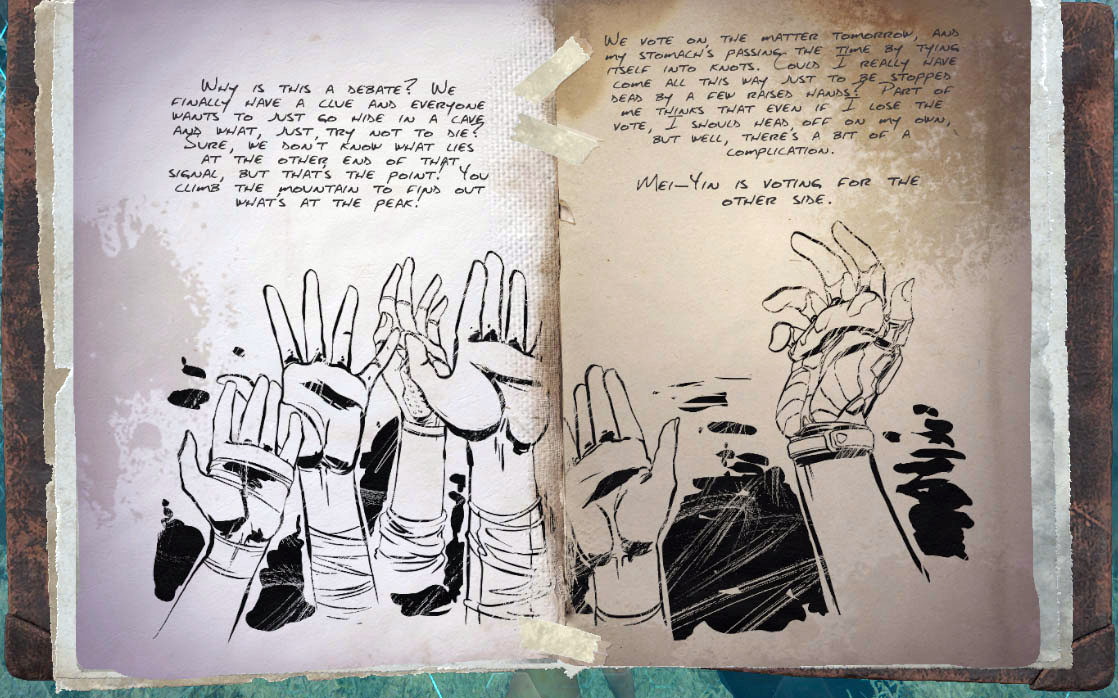 WHY IS THIS A DEBATE? WE
FINALLY HAVE A CLUE AND EVERYONE
WANTS TO JUST GO HIDE IN A CAVE
AND WHAT, JUST TRY NOT TO DIE?
SURE, WE DON'T KNOW WHAT LIES
AT THE OTHER END OF THAT
SIGNAL, BUT THAT'S THE POINT! YOU
CLIMB THE MOUNTAIN TO FIND OUT
WHAT'S AT THE PEAK!
WE VOTE ON THE MATTER TOMORROW, AND
MY STOMACH'S PASSING THE TIME BY TYING
ITSELF INTO KNOTS. COULD I REALLY HAVE
COME ALL THIS WAY JUST TO BE STOPPED
DEAD BY A FEW RAISED HANDS? PART OF
ME THINKS THAT EVEN IF I LOSE THE
VOTE, I SHOULD HEAD OFF ON MY OWN,
BUT WELL, THERE'S A BIT OF A
COMPLICATION.
MEI-YIN IS VOTING FOR THE
OTHER SIDE.